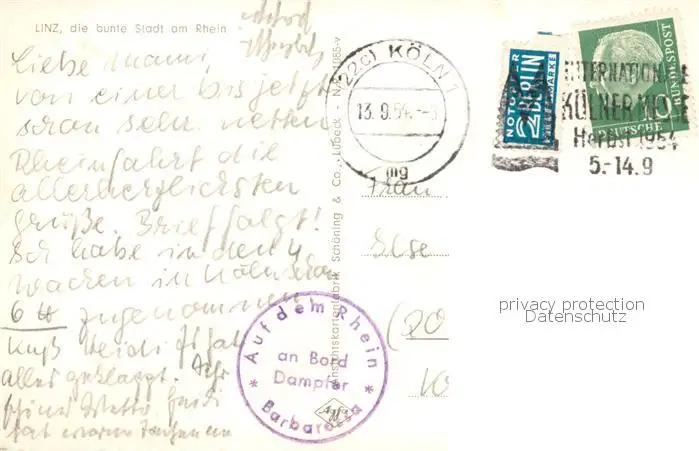 LINZ, die bunte Stadt am Rhein
Liebe Mami,
von einer bis jetzt
schon sehr netten
Rheinfahrt die
allerherzlichsten
Grüße. Brief folgt!
Ich habe in den 4
Wochen in Köln schon
6 ℔ zugenommen
Kuß Heidi
alles geklappt.
Ansichtskartenfabrik Schöning & Co., Lübeck
Agfa
(22c) KÖLN 1
13.9.54
mg
NOTOPFER
2 BERLIN
STEUERMARKE
DEUTSCHE
BUNDESPOST
10
INTERNATIONALE
KÖLNER MESSE
Herbst 1954
5.-14.9
Frau
Else
Auf dem Rhein
an Bord
Dampfer
Barbarossa
privacy protection
Datenschutz